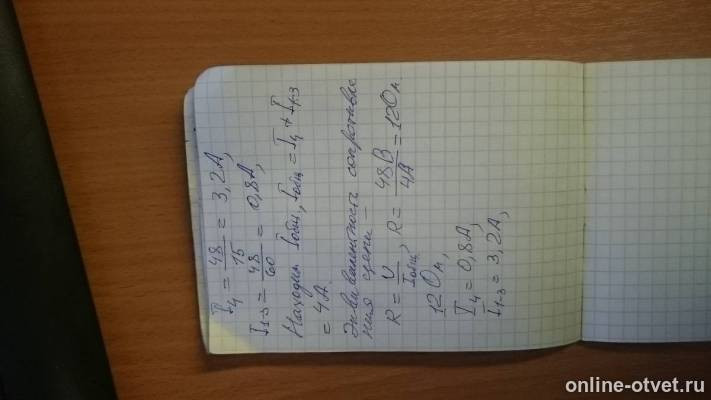 I₄ = 48/15 = 3,2А,
I₁₋₃ = 48/60 = 0,8А,
Находим Iобщ, Iобщ = I₄ + I₁₋₃
= 4А.
Эквивалентность сопротивле
ния цепи –
R = U/Iобщ, R = 48В/4А = 12Ом.
12Ом,
I₄ = 0,8А,
I₁₋₃ = 3,2А,
online-otvet.ru